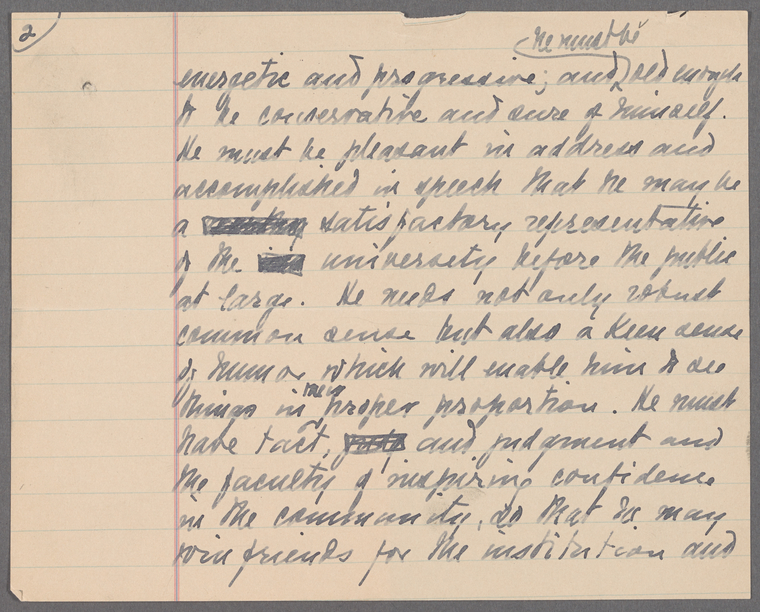 2
he must be
energetic and progressive; and old enough
to be conservative and sure of himself.
He must be pleasant in address and
accomplished in speech that he may be
a satisfactory representative
of the university before the public
at large. He needs not only robust
common sense but also a keen sense
of humor which will enable him to see
things in their proper proportion. He must
have tact, and judgment and
the faculty of inspiring confidence
in the community, so that he may
win friends for the institution and